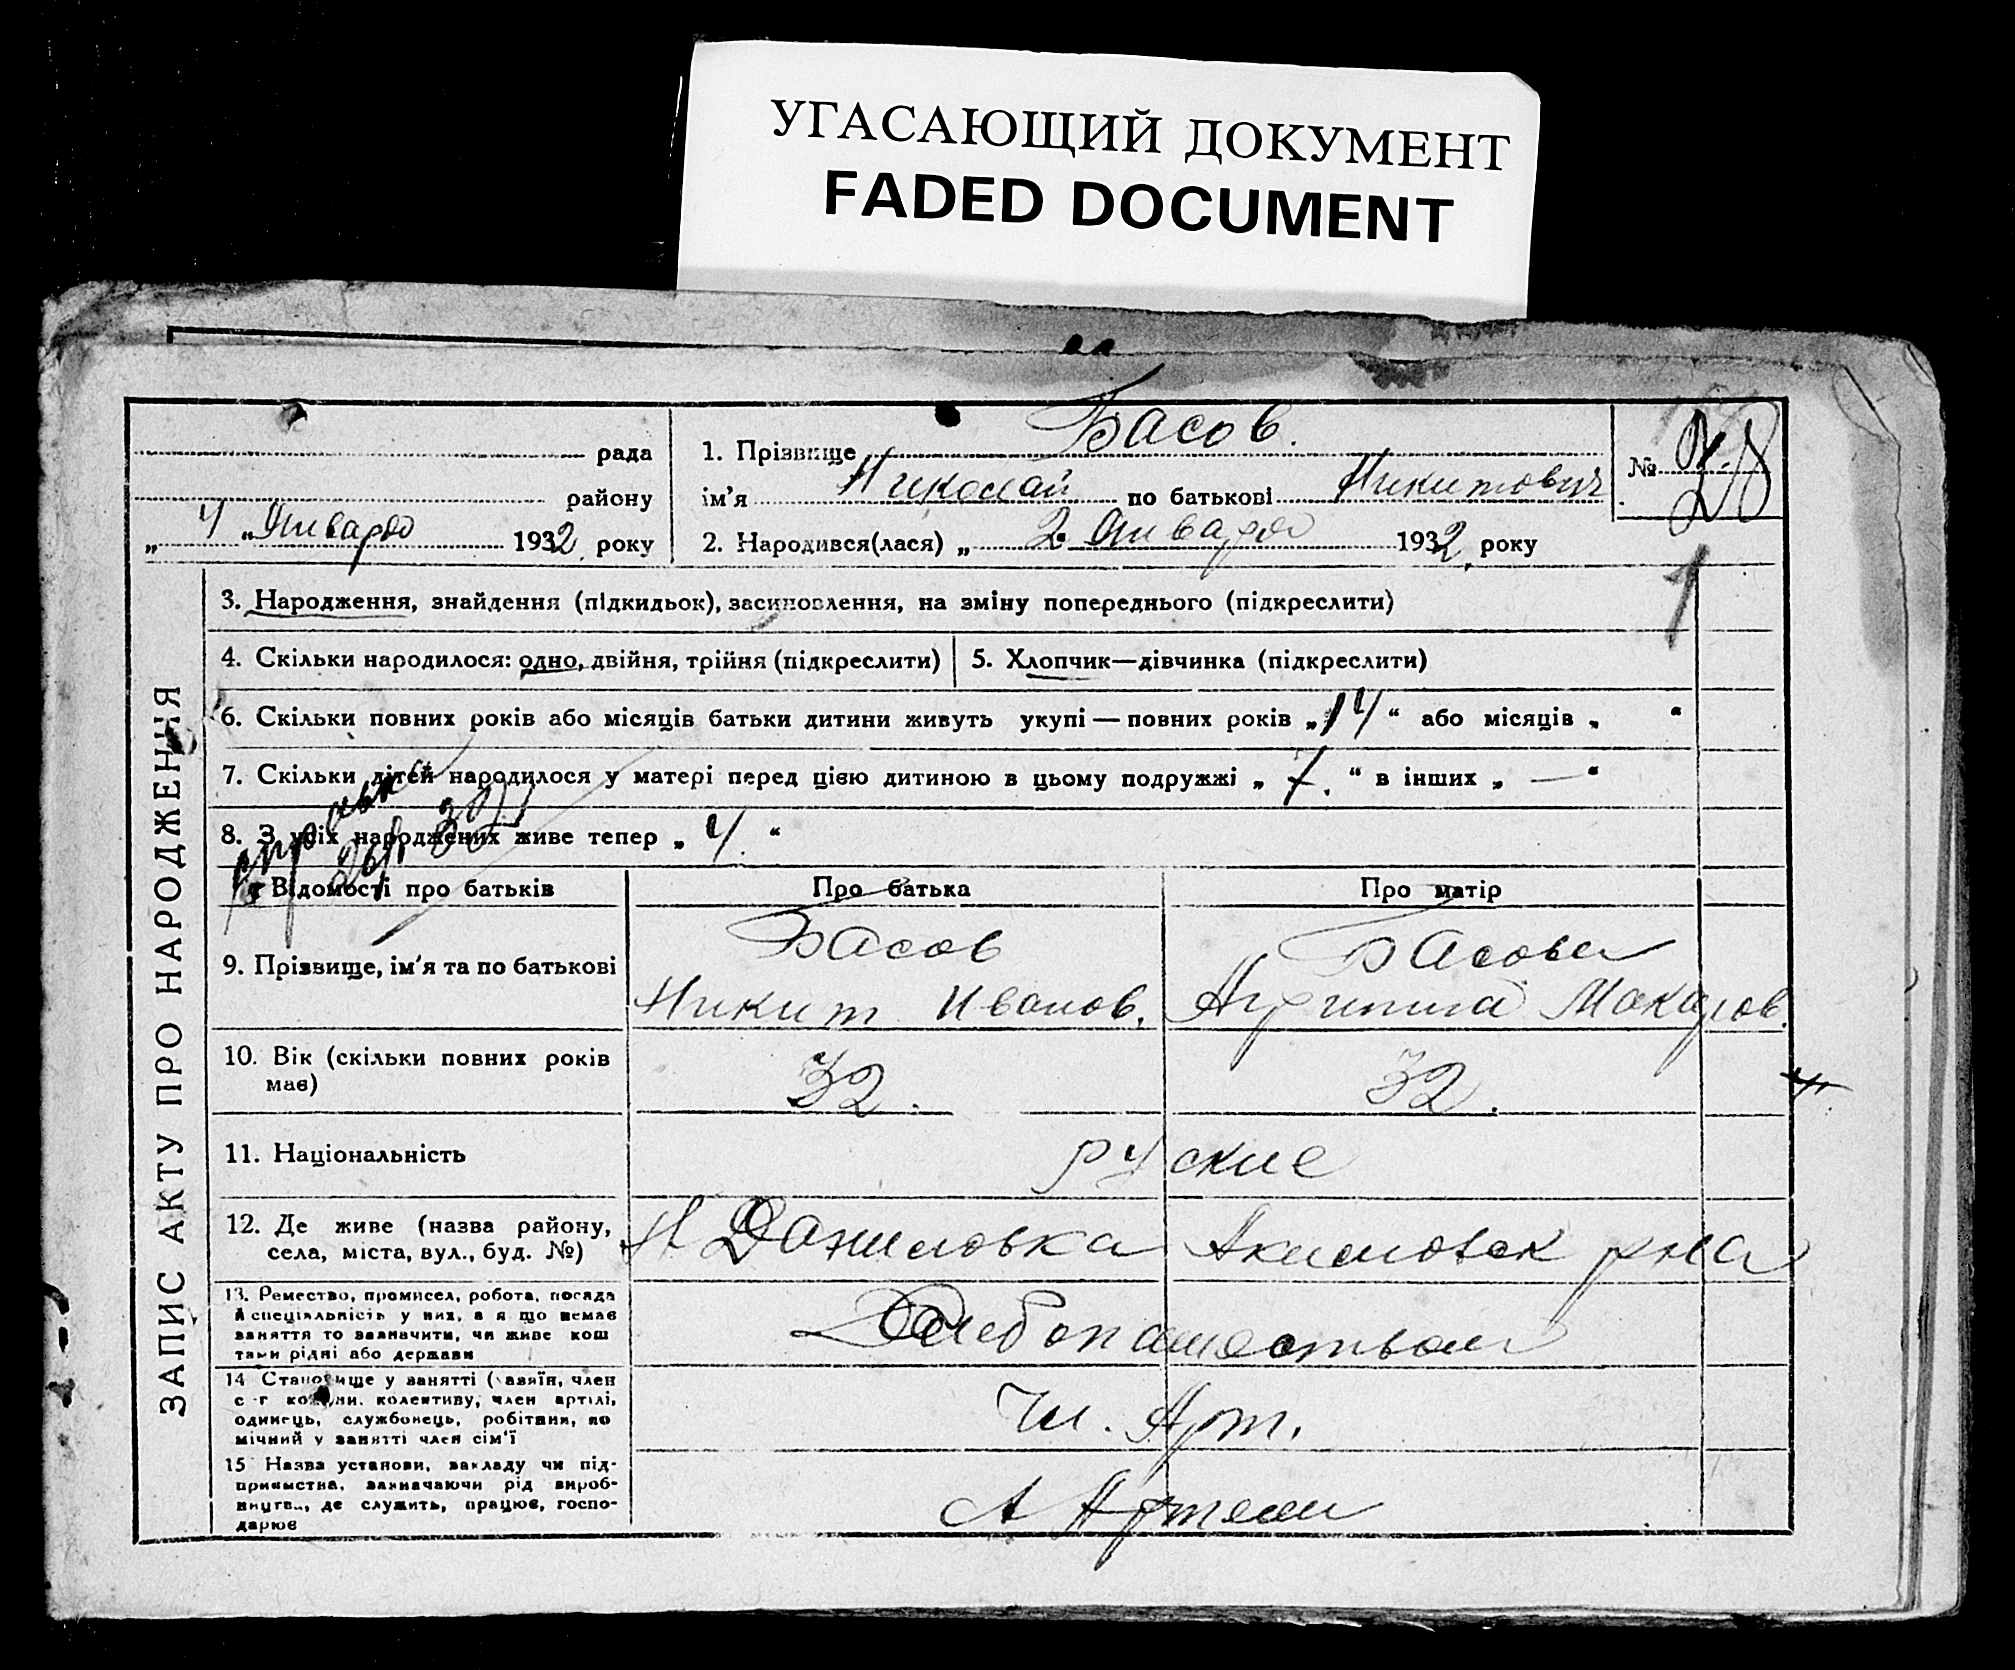 УГАСАЮЩИЙ ДОКУМЕНТ
FADED DOCUMENT
рада
району
„ 4 " Январь 1932 року
1. Прізвище Басов.
ім'я Николай по батькові Никитович
2. Народився(лася) „ 2 Января 1932 року
№ 28
1
ЗАПИС АКТУ ПРО НАРОДЖЕННЯ
3. Народження, знайдення (підкидьок), засиновлення, на зміну попереднього (підкреслити)
4. Скільки народилося: одно, двійня, трійня (підкреслити)
5. Хлопчик—дівчинка (підкреслити)
6. Скільки повних років або місяців батьки дитини живуть укупі — повних років „ 14 “ або місяців „ “
7. Скільки дітей народилося у матері перед цією дитиною в цьому подружжі „ 7. “ в інших „ — “
8. З усіх народжених живе тепер „ 4. “
Відомості про батьків
Про батька
Про матір
9. Прізвище, ім'я та по батькові
Басов
Никит Иванов.
Басова
Агрипина Макаров.
10. Вік (скільки повних років має)
32.
32.
11. Національність
руские
12. Де живе (назва району,
села, міста, вул., буд. №)
Н Даниловка Акимовск рна
13. Ремество, промисел, робота, посада
й спеціяльність у них, а я що немає
заняття то зазначити, чи живе кош
тами рідні або держави
Хлебопашеством
14 Становище у занятті (хазяїн, член
с-г комуни, колективу, член артілі,
одинець, службовець, робітник, по
мічний у занятті член сім'ї
Чл. Арт.
15 Назва установи, закладу чи під-
приємства, зазначаючи рід вироб-
ництва, де служить, працює, госпо-
дарює
Артели